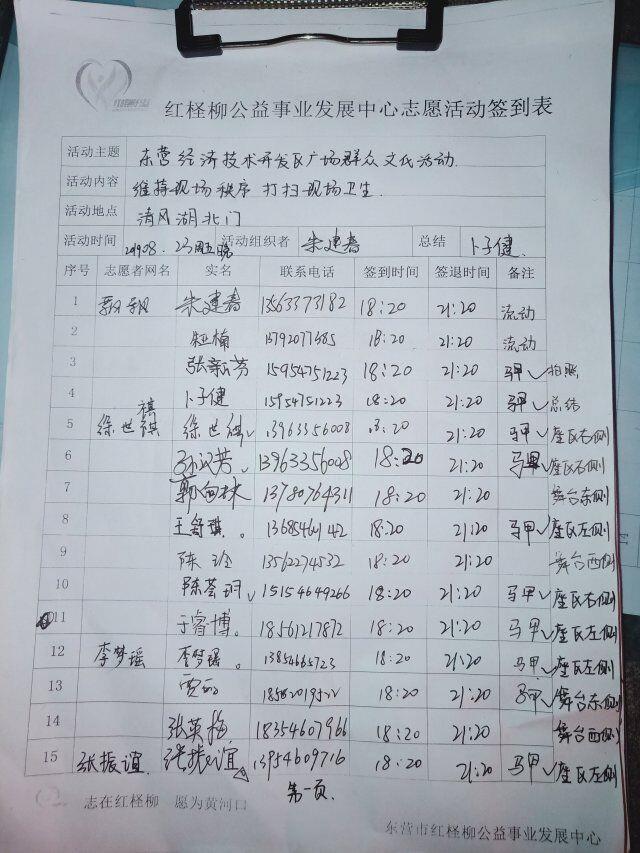 红柽柳公益事业发展中心志愿活动签到表
活动主题 东营经济技术开发区广场群众文化活动
活动内容 维持现场秩序 打扫现场卫生
活动地点 清风湖北门
活动时间 活动组织者 朱建春 总结 卜子健
序号 志愿者网名 实名 联系电话 签到时间 签退时间 备注
1 飘飘 朱建春 13563373182 18:20 21:20 流动
2 18:20 21:20 流动
3 张新芳 15954751223 18:20 21:20 马甲✓ 拍照
4 卜子健 15954751223 18:20 21:20 马甲✓ 总结
5 徐世祺 徐世祺 13963356008 18:20 21:20 马甲✓ 座区右侧
6 13963356008 18:20 21:20 马甲✓ 座区右侧
7 13780764311 18:20 21:20 舞台东侧
8 王舒琪 18:20 21:20 马甲✓ 座区左侧
9 13562274532 18:20 21:20 舞台西侧
10 15154649266 18:20 21:20 马甲✓ 座区右侧
11 于睿博 18561217872 18:20 21:20 马甲✓ 座区左侧
12 李梦瑶 李梦瑶 13854665723 18:20 21:20 马甲✓ 座区左侧
13 18:20 21:20 马甲✓ 舞台东侧
14 张英梅 18354607966 18:20 21:20 舞台西侧
15 张振谊 张振谊 13954609716 18:20 21:20 马甲✓ 座区左侧
第一页
志在红柽柳 愿为黄河口
东营市红柽柳公益事业发展中心